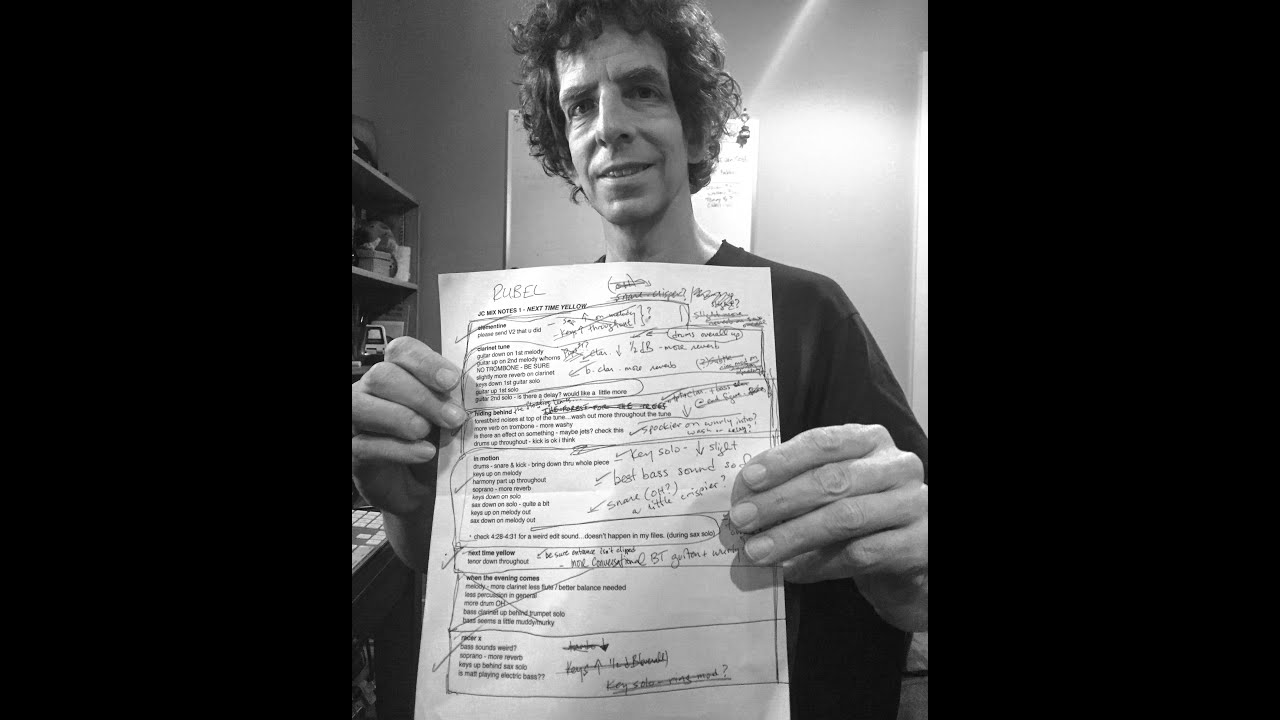 RUBEL
snare crisper?
JC MIX NOTES 1 - NEXT TIME YELLOW
clementine
please send V2 that u did
- sop ↑ on melody ?
- Keys ↑ throughout
slight more
clarinet tune
guitar down on 1st melody
guitar up on 2nd melody w/horns
NO TROMBONE - BE SURE
slightly more reverb on clarinet
keys down 1st guitar solo
guitar up 1st solo
guitar 2nd solo - is there a delay? would like a little more
(drums overall up)
clar. ↓ 1/2 dB - more reverb
b. clar - more reverb
hiding behind
THE FOREST FOR THE TREES
forest/bird noises at top of the tune...wash out more throughout the tune
more verb on trombone - more washy
is there an effect on something - maybe jets? check this
drums up throughout - kick is ok i think
spookier on wurly intro?
wash or delay?
in motion
drums - snare & kick - bring down thru whole piece
keys up on melody
harmony part up throughout
soprano - more reverb
keys down on solo
sax down on solo - quite a bit
keys up on melody out
sax down on melody out
Key solo - ↓ slight
best bass sound so
snare (OH?)
a little crispier?
* check 4:28-4:31 for a weird edit sound...doesn't happen in my files. (during sax solo)
next time yellow
tenor down throughout
be sure entrance isn't clipped
- more conversational BT guitar + wurly
when the evening comes
melody - more clarinet less flute / better balance needed
less percussion in general
more drum OH
bass clarinet up behind trumpet solo
bass seems a little muddy/murky
racer x
bass sounds weird?
soprano - more reverb
keys up behind sax solo
is matt playing electric bass??
Keys ↑ 1/2 dB (overall)
Key solo - ring mod?